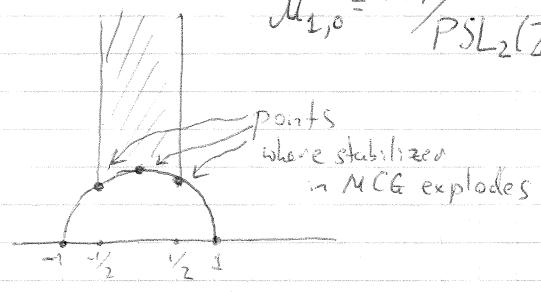 M₁,₀ =
/PSL₂(Z
points
where stabilizer
in MCG explodes
-1 -1/2 1/2 1